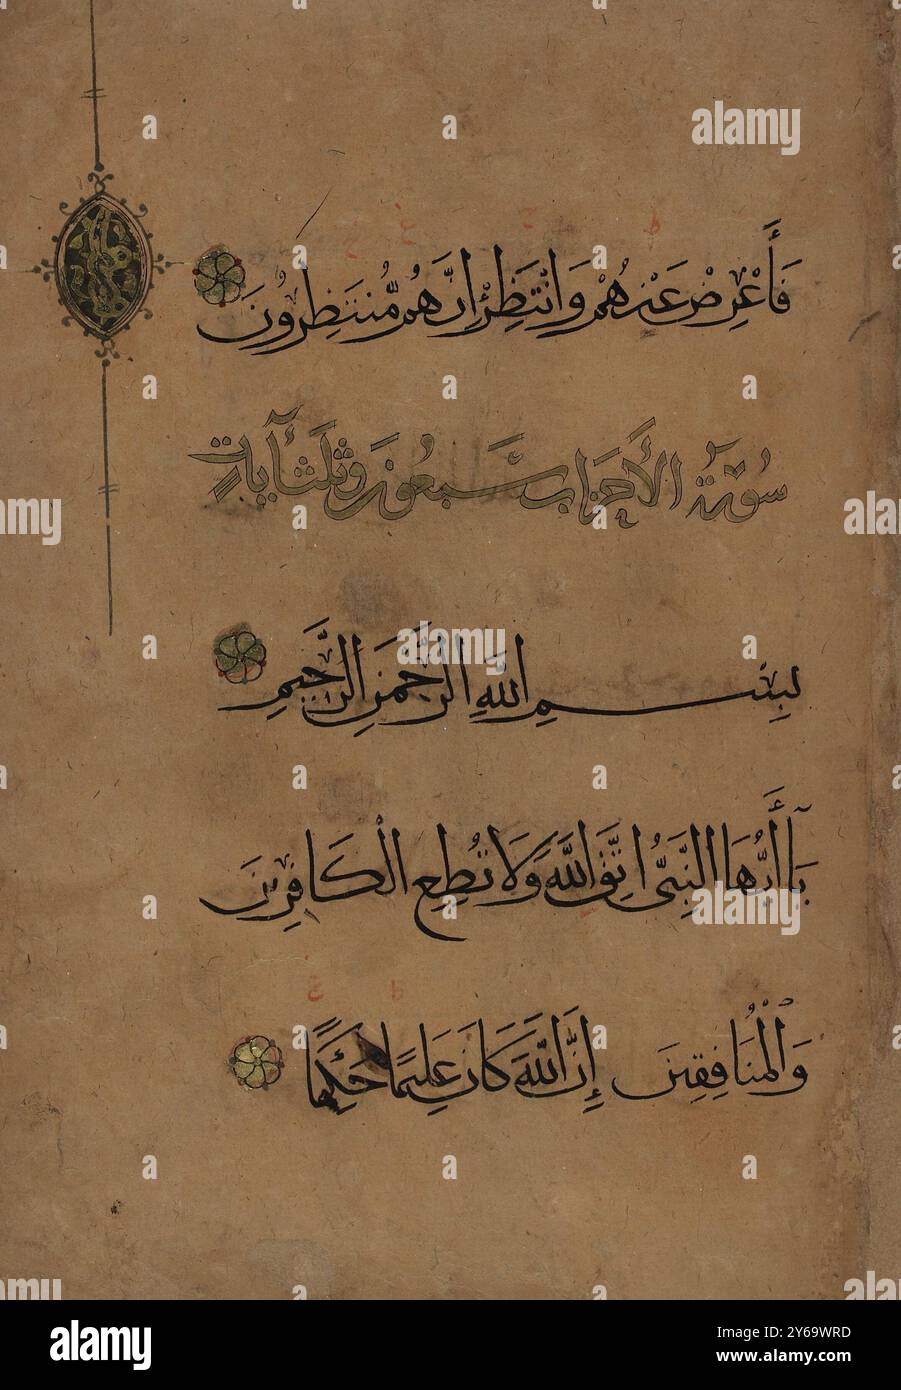 فَأَعْرِضْ عَنْهُمْ وَانْتَظِرْ إِنَّهُمْ مُّنتَظِرُونَ
سُورَةُ الْأَحْزَابِ سَبْعُونَ وَثَلَثُ آيَاتٍ
بِسْمِ اللَّهِ الرَّحْمَنِ الرَّحِيمِ
يَا أَيُّهَا النَّبِيُّ اتَّقِ اللَّهَ وَلَا تُطِعِ الْكَافِرِينَ
وَالْمُنَافِقِينَ إِنَّ اللَّهَ كَانَ عَلِيمًا حَكِيمًا
alamy
Image ID: 2Y69WRD
www.alamy.com